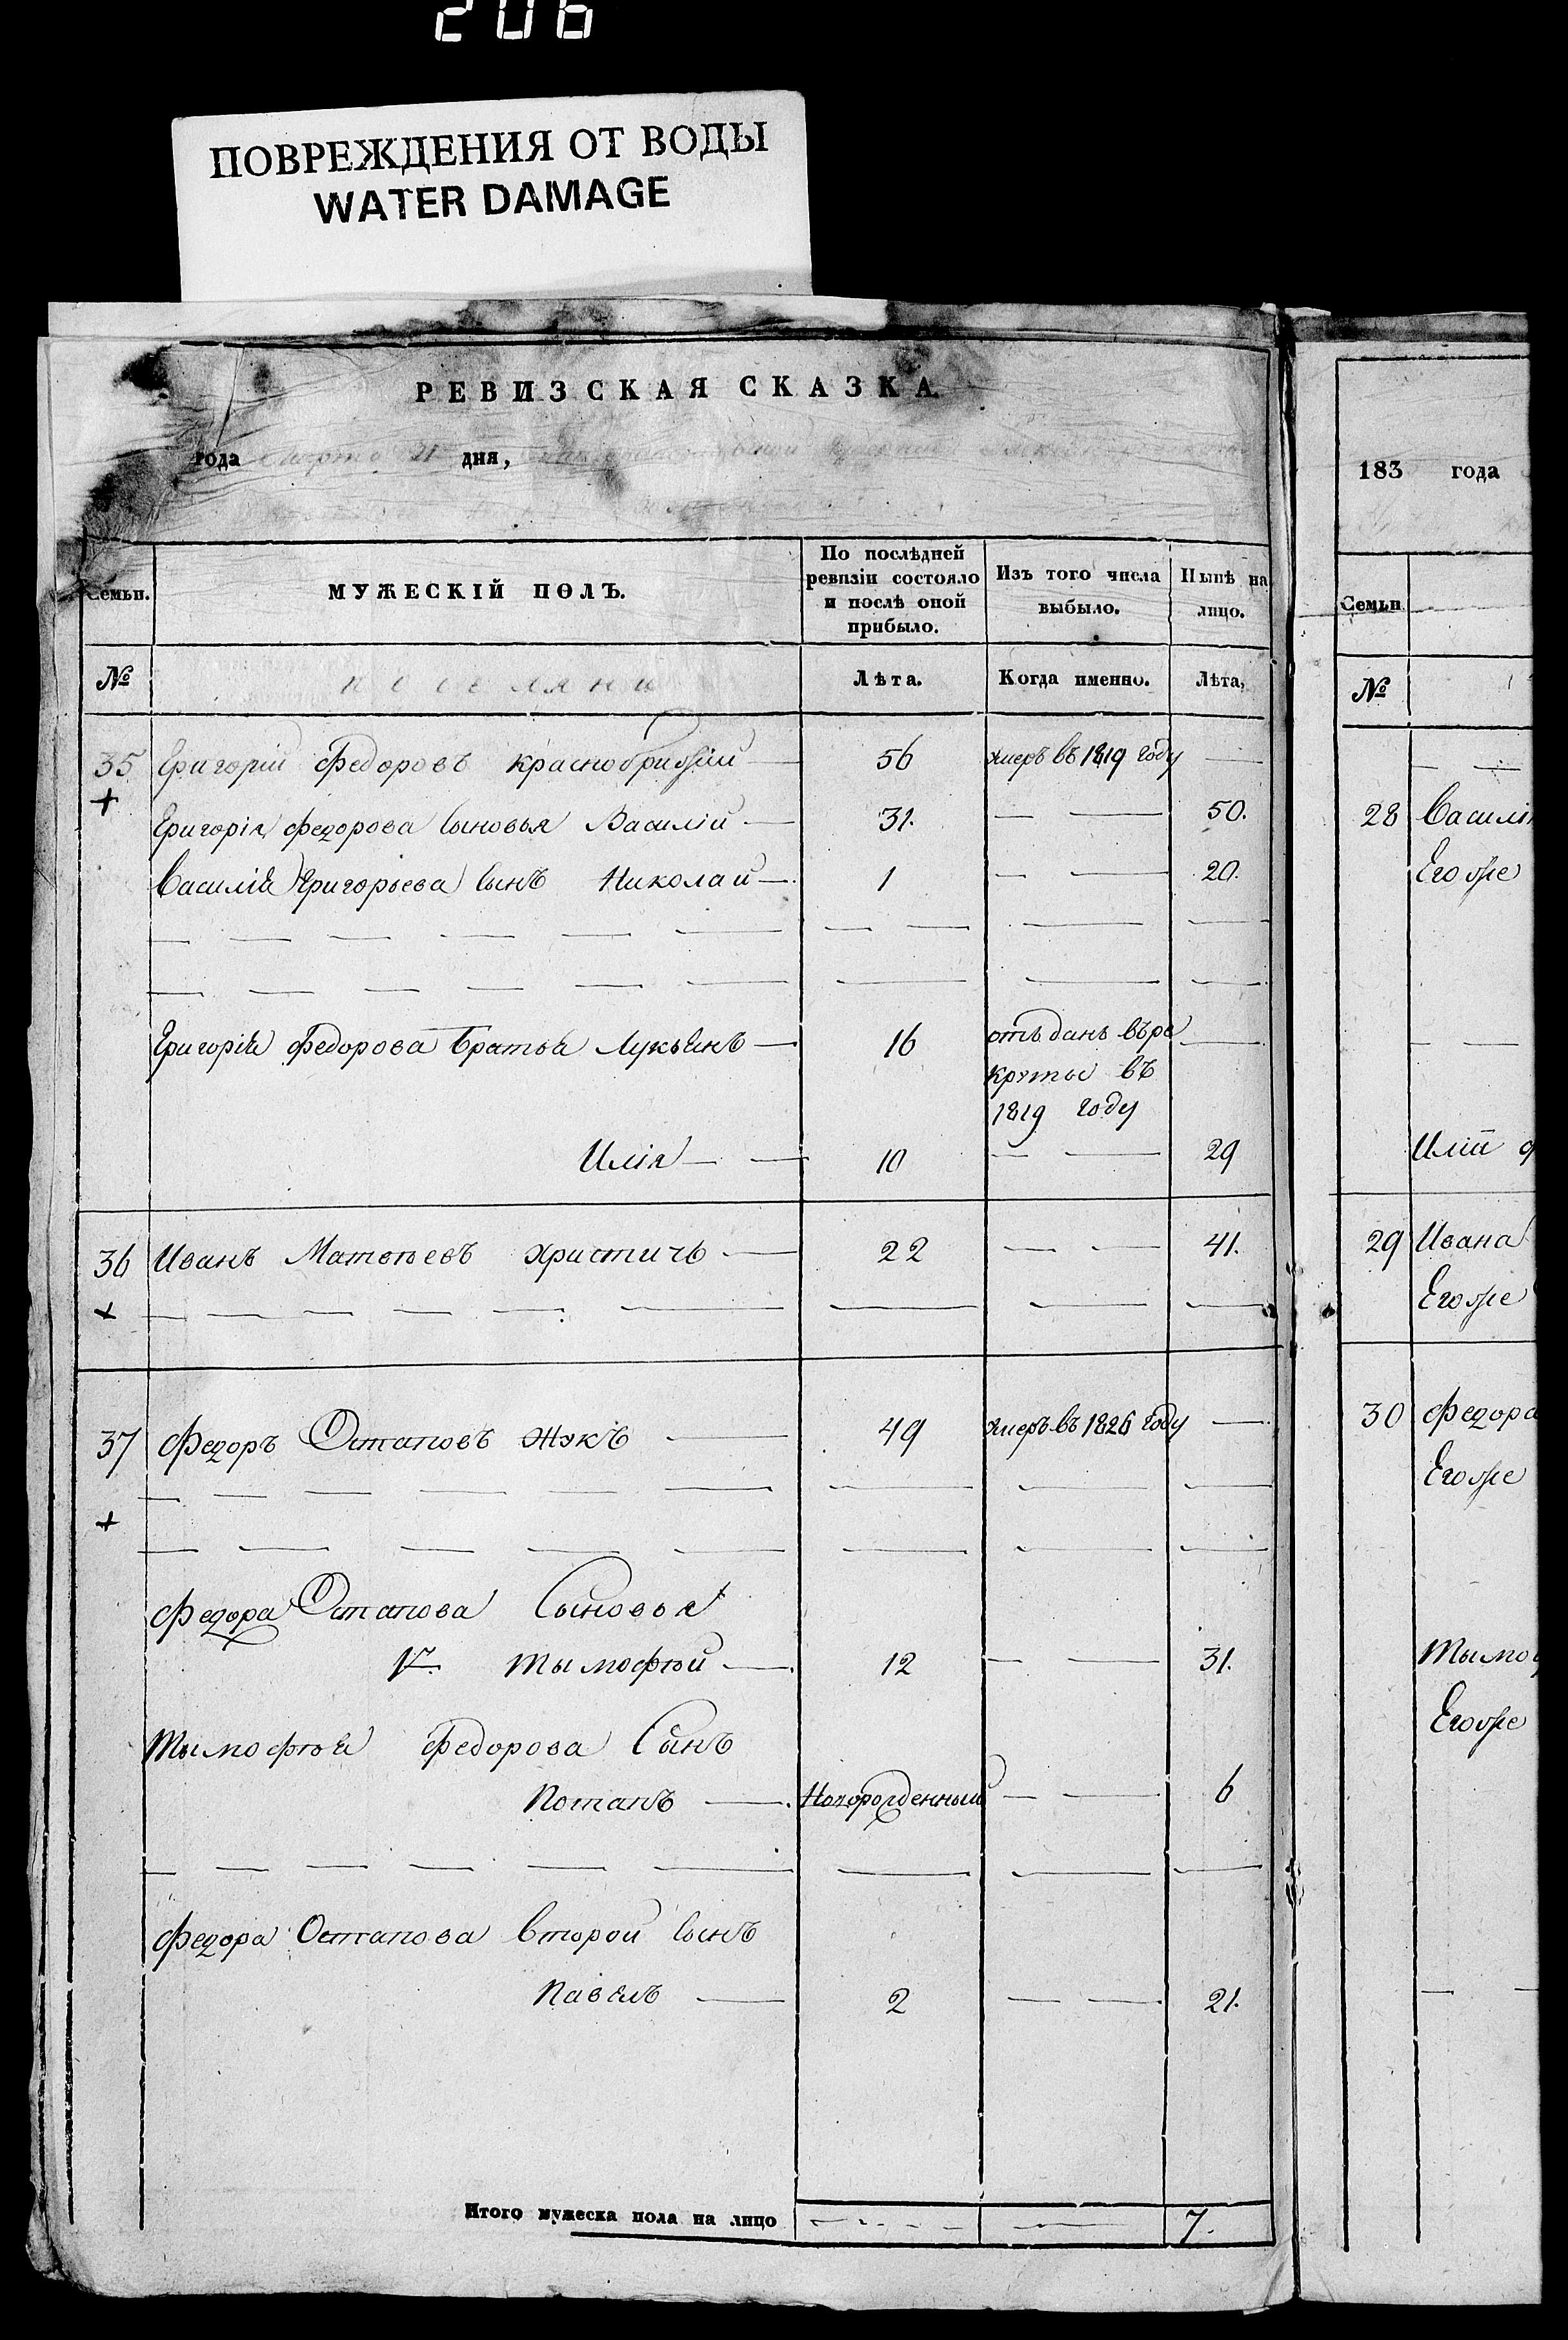 206
ПОВРЕЖДЕНИЯ ОТ ВОДЫ
WATER DAMAGE
РЕВИЗСКАЯ СКАЗКА.
года Марта 21 дня,
Семьи.
МУЖЕСКІЙ ПОЛЪ.
По послѣдней ревизіи состояло и послѣ оной прибыло.
Изъ того числа выбыло.
Нынѣ на лицо.
№
поселяни
Лѣта.
Когда именно.
Лѣта.
35 Григорій Федоровъ 56 умеръ въ 1819 году —
+
Григорія Федорова Сыновья Василій — 31. — — 50.
Василія Григорьева Сынъ Николай — 1 — — 20.
Григорія Федорова Братья Лукьянъ — 16 отъданъ въре —
круты въ
1819 году
Илія — — 10 — — 29
36 Иванъ Матвѣевъ Христичь — 22 — — 41.
+
37 Федоръ Остаповъ Жукъ — 49 умеръ въ 1826 году —
+
Федора Остапова Сыновья
1й Тымофѣй — 12 — — 31.
Тымофѣя Федорова Сынъ
Потапъ — Новорожденный — — 6
Федора Остапова Второй Сынъ
Павелъ — 2 — — 21.
Итого мужеска пола на лицо 7.
183 года
Семьи
№
28 Василія
Егоже
Иліи
29 Ивана
Егоже
30 Федора
Егоже
Тымо
Егоже